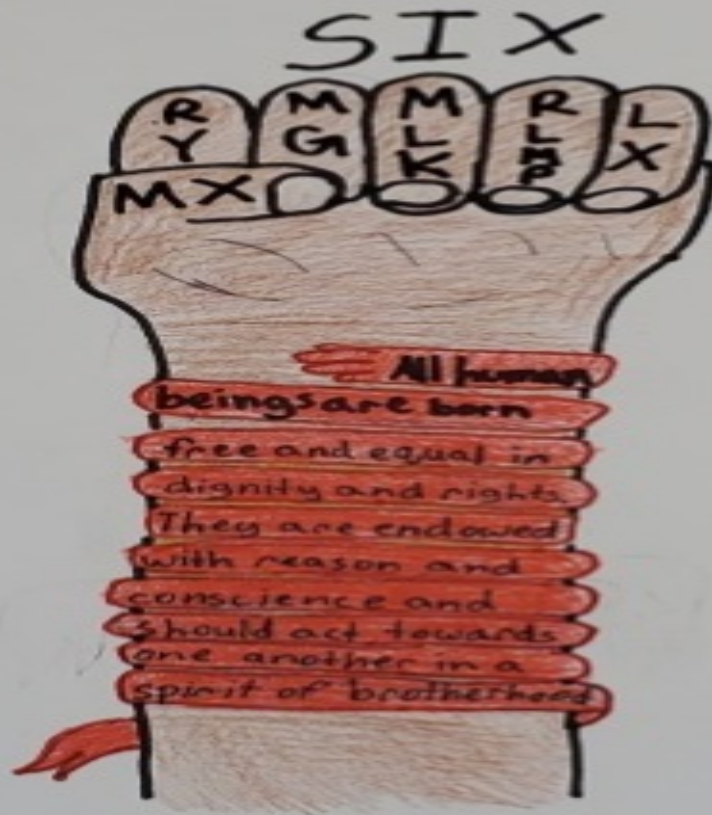 SIX
R M M R L
Y G L L X
K M
P
MX
All human
beings are born
free and equal in
dignity and rights.
They are endowed
with reason and
conscience and
should act towards
one another in a
spirit of brotherhood